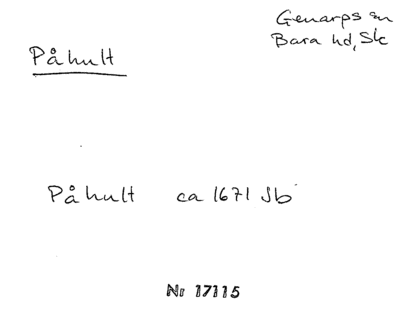 Genarps sn
Bara hd, Sk
Påhult
Påhult ca 1671 Jb
Nr 17115